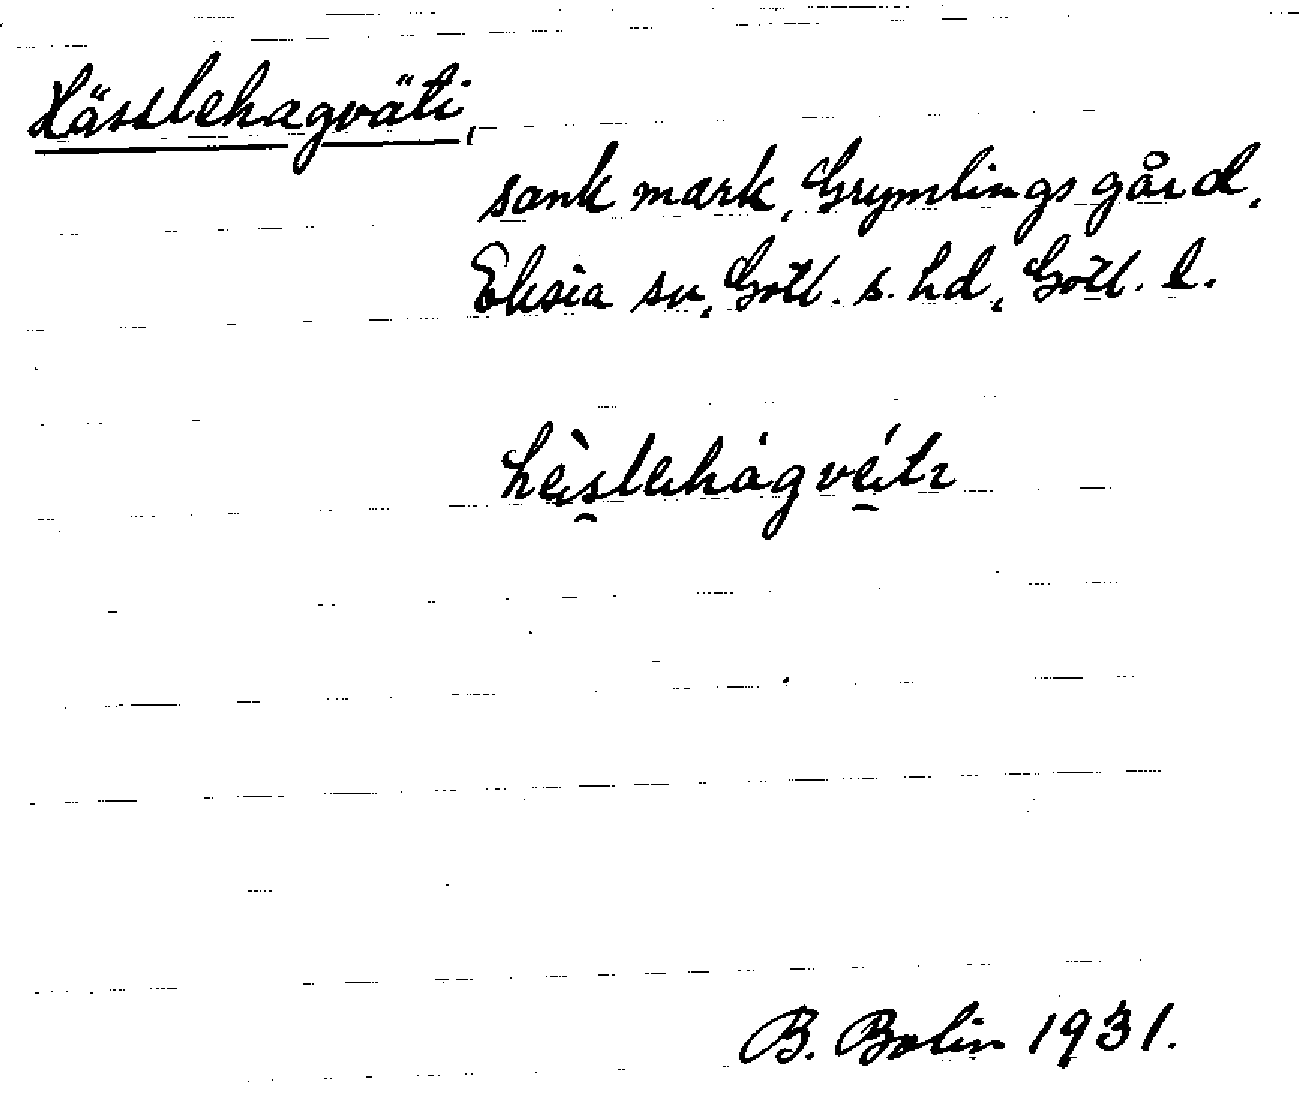 Hässlehagväti,
sank mark, Grymlings gård,
Eksta sn, Gotl. s. hd, Gotl. l.
B. Bolin 1931.